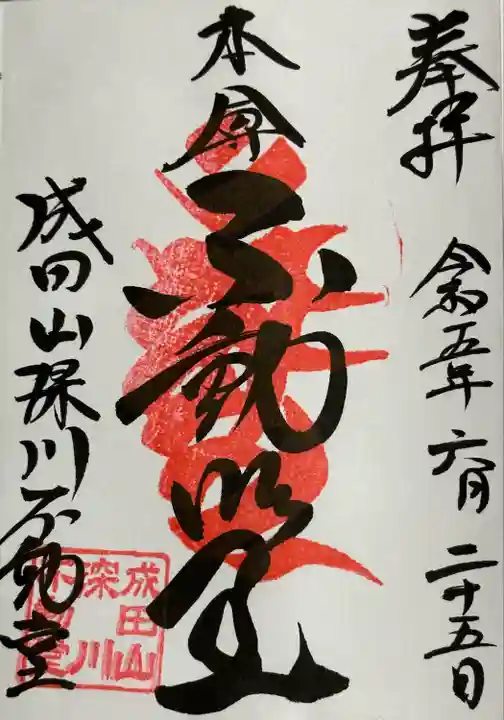 奉拝
令和五年六月二十五日
本尊
不動明王
成田山深川不動堂
成田山
深川
不動堂